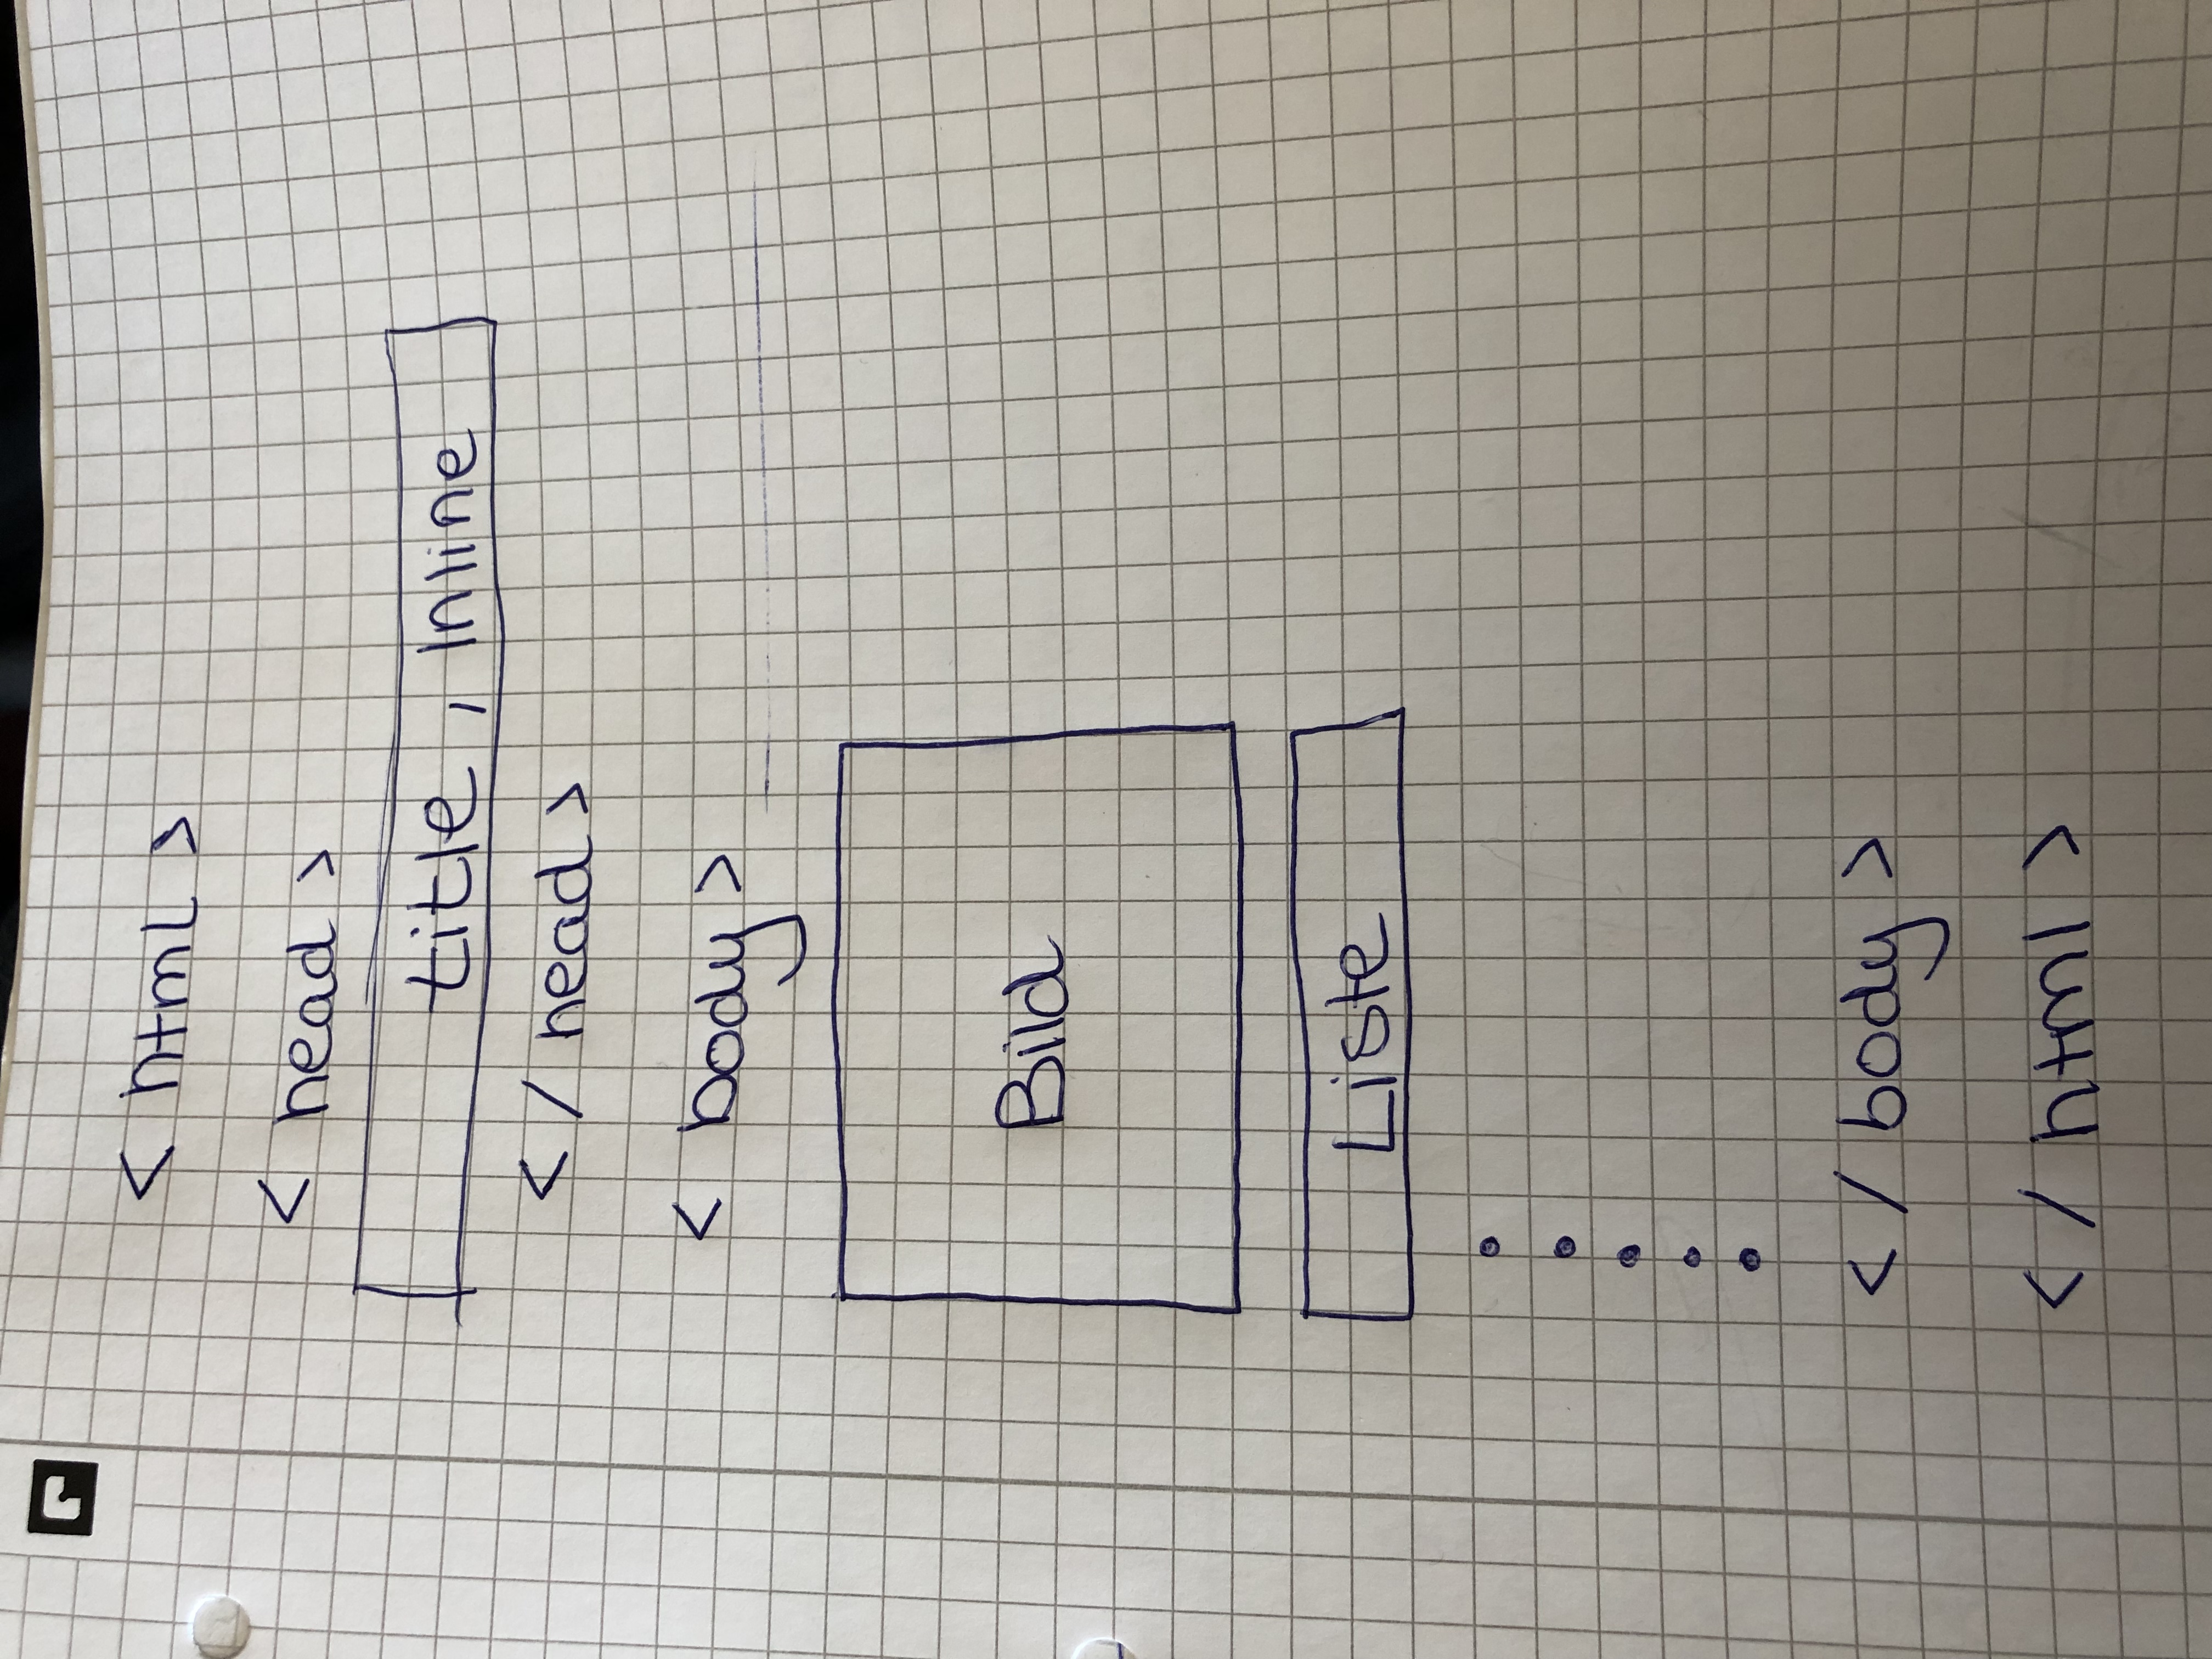 < html >
< head >
title , Inline
</ head >
< body >
Bild
Liste
</ body >
</ html >